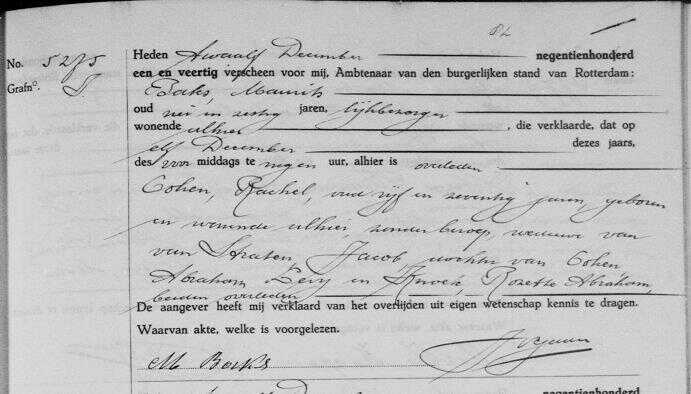 82
No. 5275
Heden Twaalf December negentienhonderd
een en veertig verscheen voor mij, Ambtenaar van den burgerlijken stand van Rotterdam:
Grafno.
Maurits
oud en zestig jaren, lijkbezorger
wonende alhier, die verklaarde, dat op
elf December dezes jaars,
des voor middags te negen uur, alhier is overleden
Cohen, Rachel, oud vijf en zeventig jaren, geboren
en wonende alhier, zonder beroep, weduwe van
van Straten, Jacob, dochter van Cohen
Abraham Levy en Rosette Abraham,
beiden overleden
De aangever heeft mij verklaard van het overlijden uit eigen wetenschap kennis te dragen.
Waarvan akte, welke is voorgelezen.
M
December negentienhonderd